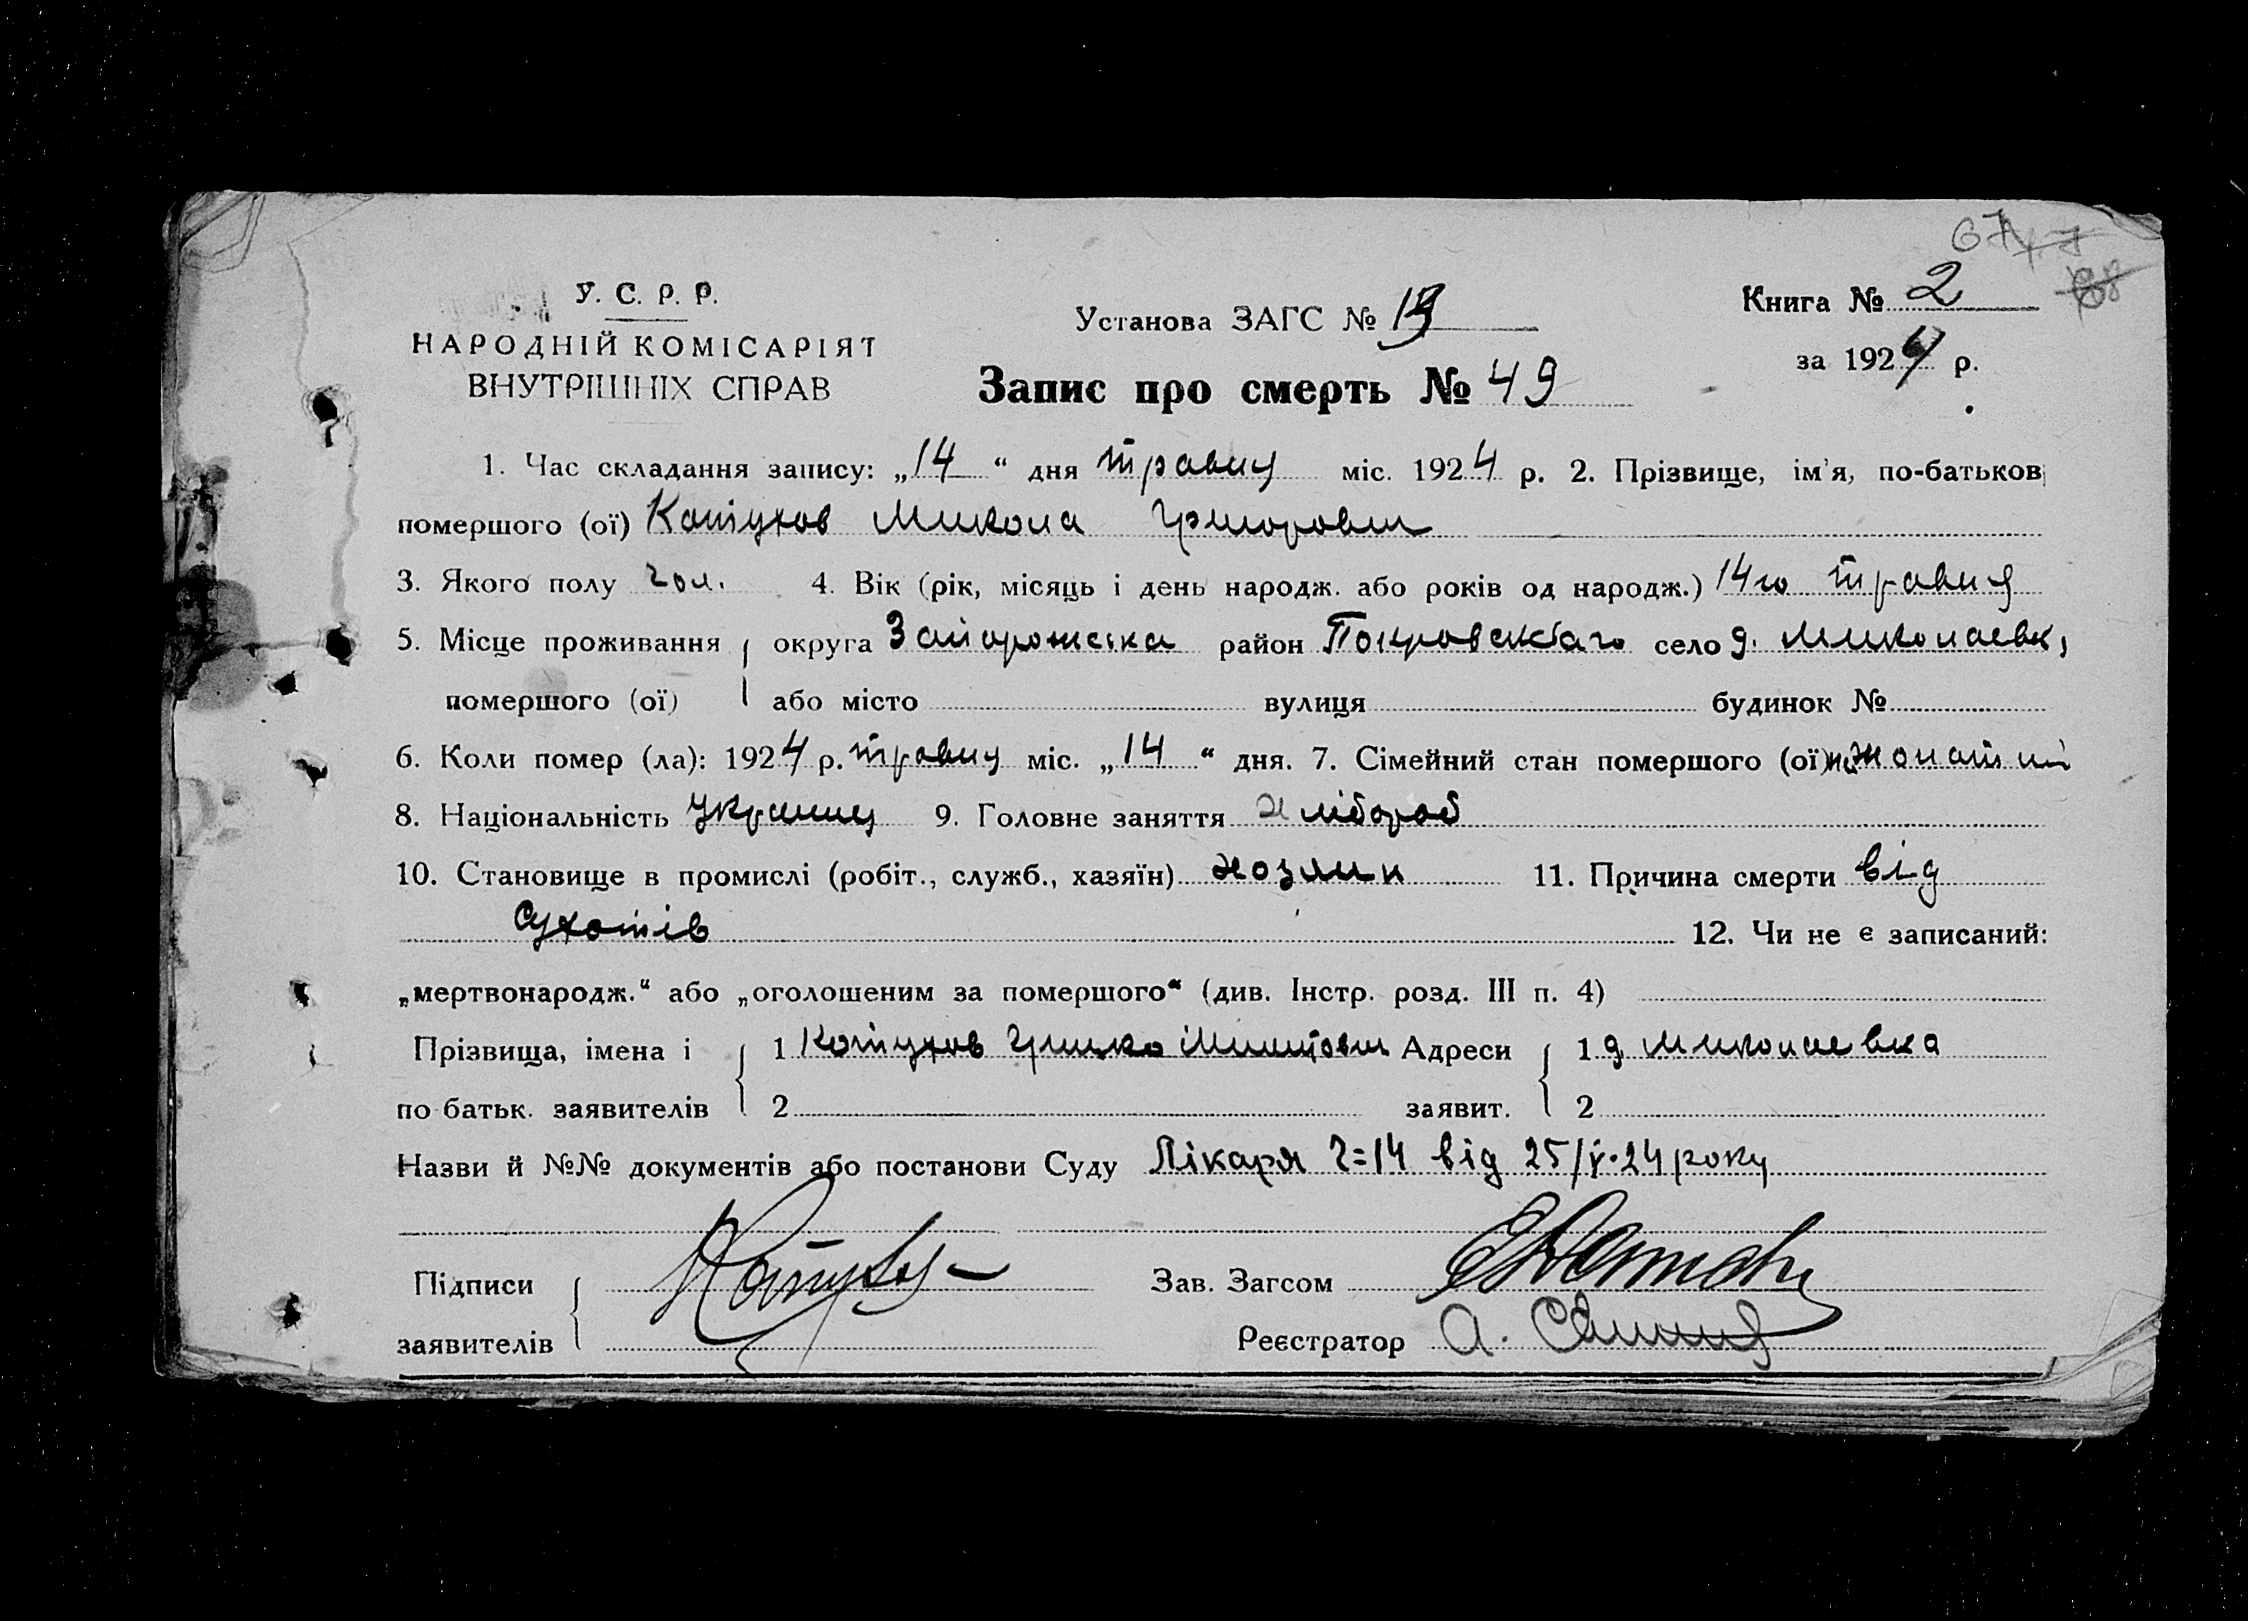 У. С. Р. Р.
НАРОДНІЙ КОМІСАРІЯТ
ВНУТРІШНІХ СПРАВ
Установа ЗАГС №
Запис про смерть № 49
Книга № 2
за 1924 р.
1. Час складання запису: „14“ дня травня міс. 1924 р. 2. Прізвище, ім'я, по-батьков
помершого (ої) Котухов Микола Григорович
3. Якого полу чол. 4. Вік (рік, місяць і день народж. або років од народж.) 14го травня
5. Місце проживання округа Запорожська район Покровскаго село д. Миколаевк
помершого (ої) або місто вулиця будинок №
6. Коли помер (ла): 1924 р. травня міс. „14“ дня. 7. Сімейний стан помершого (ої)
8. Національність украинец 9. Головне заняття хлібороб
10. Становище в промислі (робіт., служб., хазяїн) хозяин 11. Причина смерти від
Сухотів 12. Чи не є записаний:
„мертвонародж.“ або „оголошеним за помершого“ (див. Інстр. розд. III п. 4)
Прізвища, імена і 1 Котухов Грицко Адреси 1 д Миколаевка
по батьк. заявителів 2 заявит. 2
Назви й №№ документів або постанови Суду Лікаря Ч=14 від 25/V-24 року
Підписи Зав. Загсом
заявителів Реєстратор А.